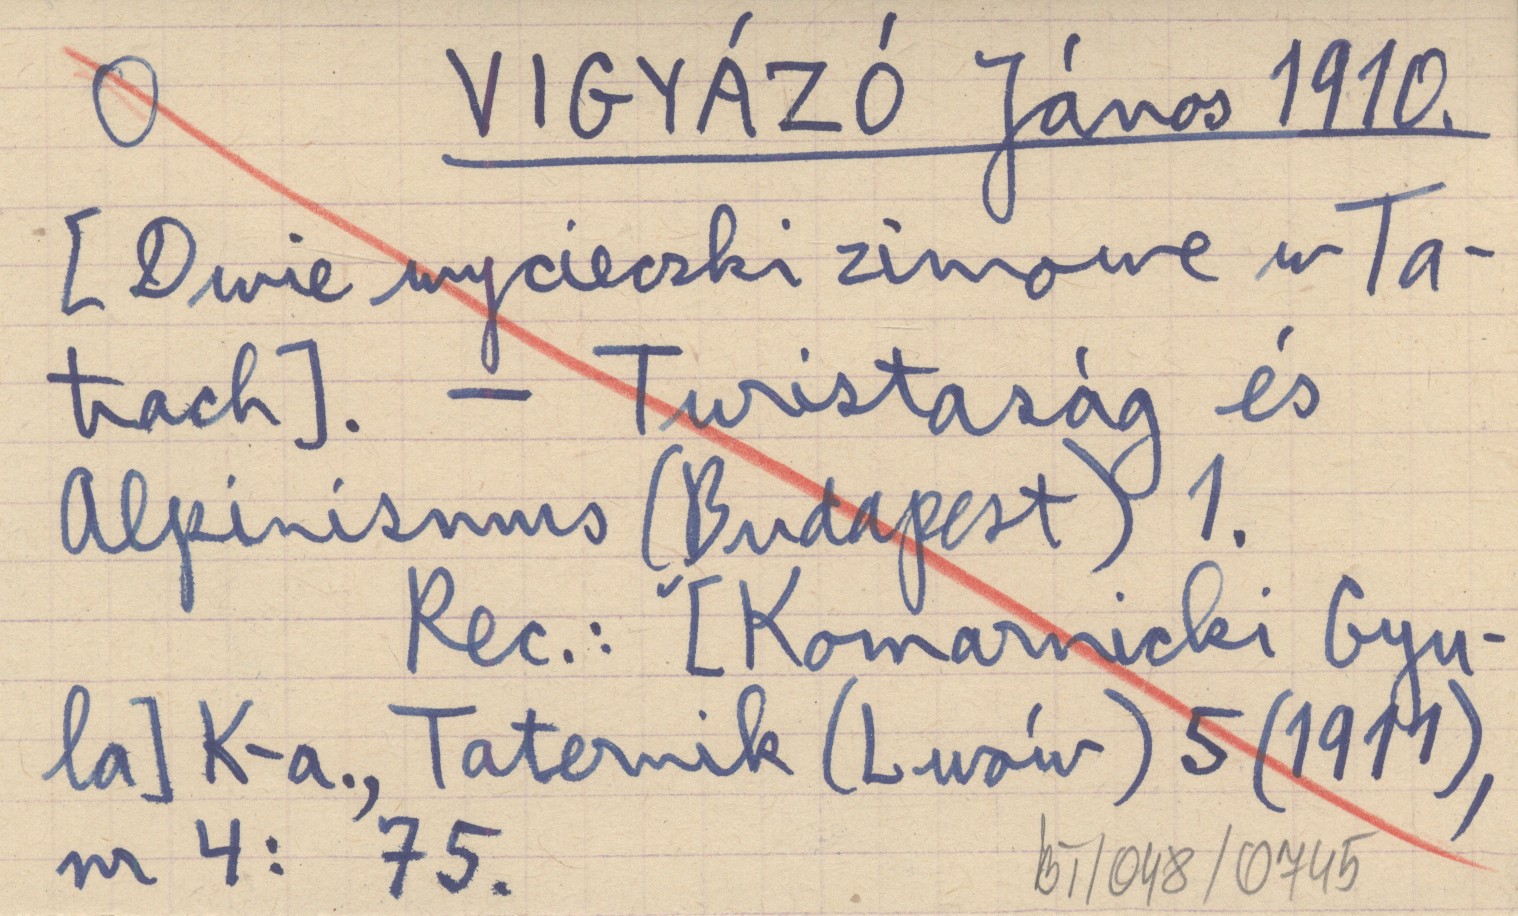 O VIGYÁZÓ János 1910.
[Dwie wycieczki zimowe w Ta-
trach]. — Turistaság és
Alpinismus (Budapest) 1.
Rec.: [Komarnicki Gyu-
la] K-a., Taternik (Lwów) 5 (1911),
nr 4: 75.
bT/048/0745